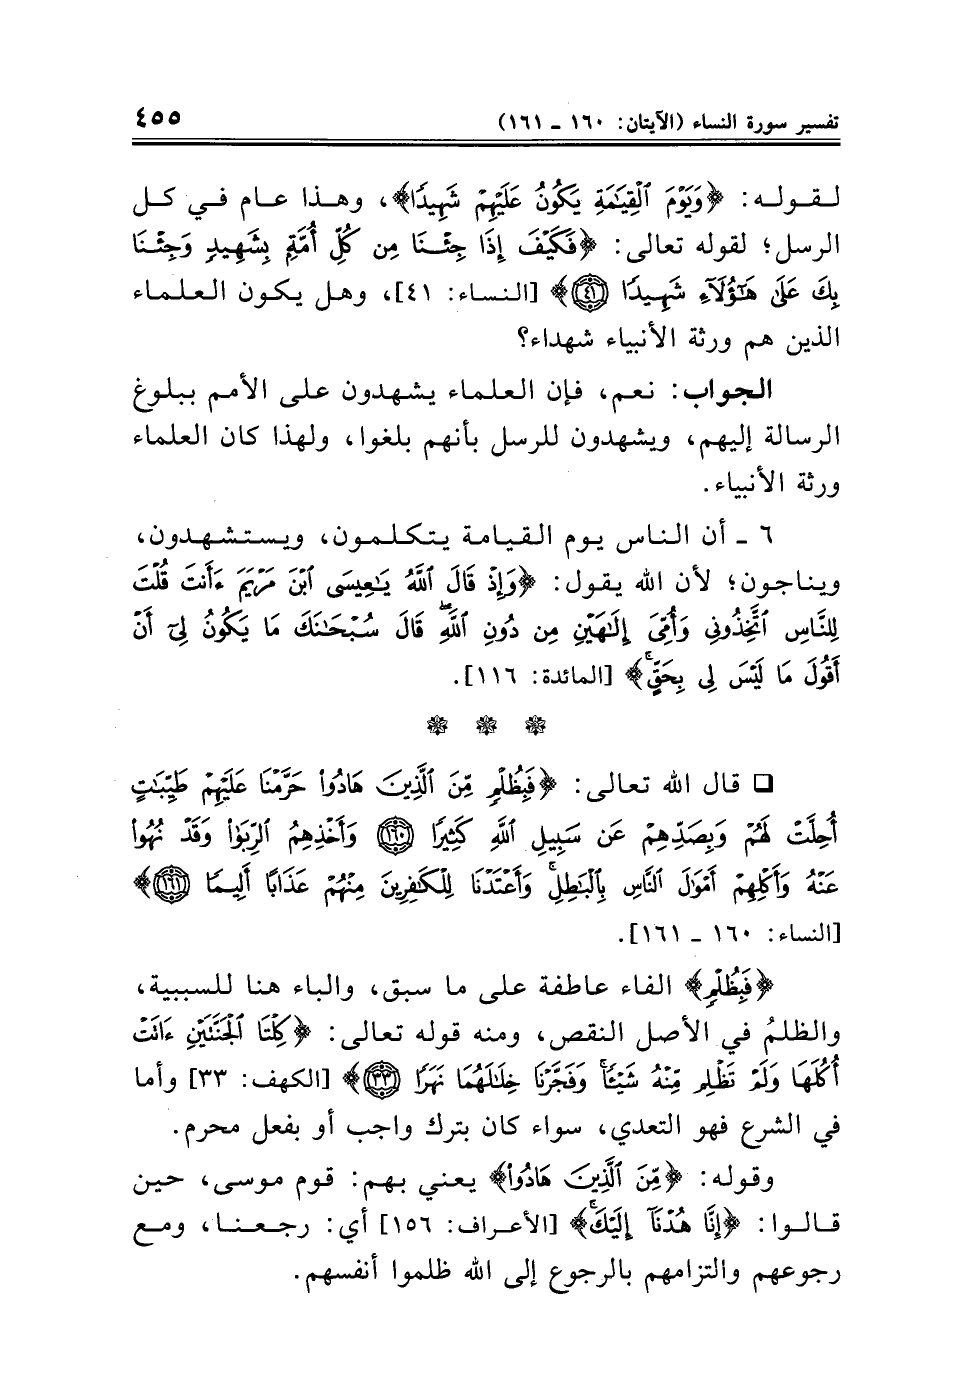 تفسير سورة النساء (الآيتان: ١٦٠ ـ ١٦١) ٤٥٥
لقوله: ﴿وَيَوْمَ ٱلْقِيَٰمَةِ يَكُونُ عَلَيْهِمْ شَهِيدًا﴾، وهذا عام في كل
الرسل؛ لقوله تعالى: ﴿فَكَيْفَ إِذَا جِئْنَا مِن كُلِّ أُمَّةٍۭ بِشَهِيدٍ وَجِئْنَا
بِكَ عَلَىٰ هَٰٓؤُلَآءِ شَهِيدًا ۝٤١﴾ [النساء: ٤١]، وهل يكون العلماء
الذين هم ورثة الأنبياء شهداء؟
الجواب: نعم، فإن العلماء يشهدون على الأمم ببلوغ
الرسالة إليهم، ويشهدون للرسل بأنهم بلغوا، ولهذا كان العلماء
ورثة الأنبياء.
٦ ـ أن الناس يوم القيامة يتكلمون، ويستشهدون،
ويناجون؛ لأن الله يقول: ﴿وَإِذْ قَالَ ٱللَّهُ يَٰعِيسَى ٱبْنَ مَرْيَمَ ءَأَنتَ قُلْتَ
لِلنَّاسِ ٱتَّخِذُونِى وَأُمِّىَ إِلَٰهَيْنِ مِن دُونِ ٱللَّهِۖ قَالَ سُبْحَٰنَكَ مَا يَكُونُ لِىٓ أَنْ
أَقُولَ مَا لَيْسَ لِى بِحَقٍّۚ﴾ [المائدة: ١١٦].
❁ ❁ ❁
❑ قال الله تعالى: ﴿فَبِظُلْمٍ مِّنَ ٱلَّذِينَ هَادُوا۟ حَرَّمْنَا عَلَيْهِمْ طَيِّبَٰتٍ
أُحِلَّتْ لَهُمْ وَبِصَدِّهِمْ عَن سَبِيلِ ٱللَّهِ كَثِيرًا ۝١٦٠ وَأَخْذِهِمُ ٱلرِّبَوٰا۟ وَقَدْ نُهُوا۟
عَنْهُ وَأَكْلِهِمْ أَمْوَٰلَ ٱلنَّاسِ بِٱلْبَٰطِلِۚ وَأَعْتَدْنَا لِلْكَٰفِرِينَ مِنْهُمْ عَذَابًا أَلِيمًا ۝١٦١﴾
[النساء: ١٦٠ ـ ١٦١].
﴿فَبِظُلْمٍ﴾ الفاء عاطفة على ما سبق، والباء هنا للسببية،
والظلمُ في الأصل النقص، ومنه قوله تعالى: ﴿كِلْتَا ٱلْجَنَّتَيْنِ ءَاتَتْ
أُكُلَهَا وَلَمْ تَظْلِم مِّنْهُ شَيْـًٔاۚ وَفَجَّرْنَا خِلَٰلَهُمَا نَهَرًا ۝٣٣﴾ [الكهف: ٣٣] وأما
في الشرع فهو التعدي، سواء كان بترك واجب أو بفعل محرم.
وقوله: ﴿مِّنَ ٱلَّذِينَ هَادُوا۟﴾ يعني بهم: قوم موسى، حين
قالوا: ﴿إِنَّا هُدْنَآ إِلَيْكَۚ﴾ [الأعراف: ١٥٦] أي: رجعنا، ومع
رجوعهم والتزامهم بالرجوع إلى الله ظلموا أنفسهم.